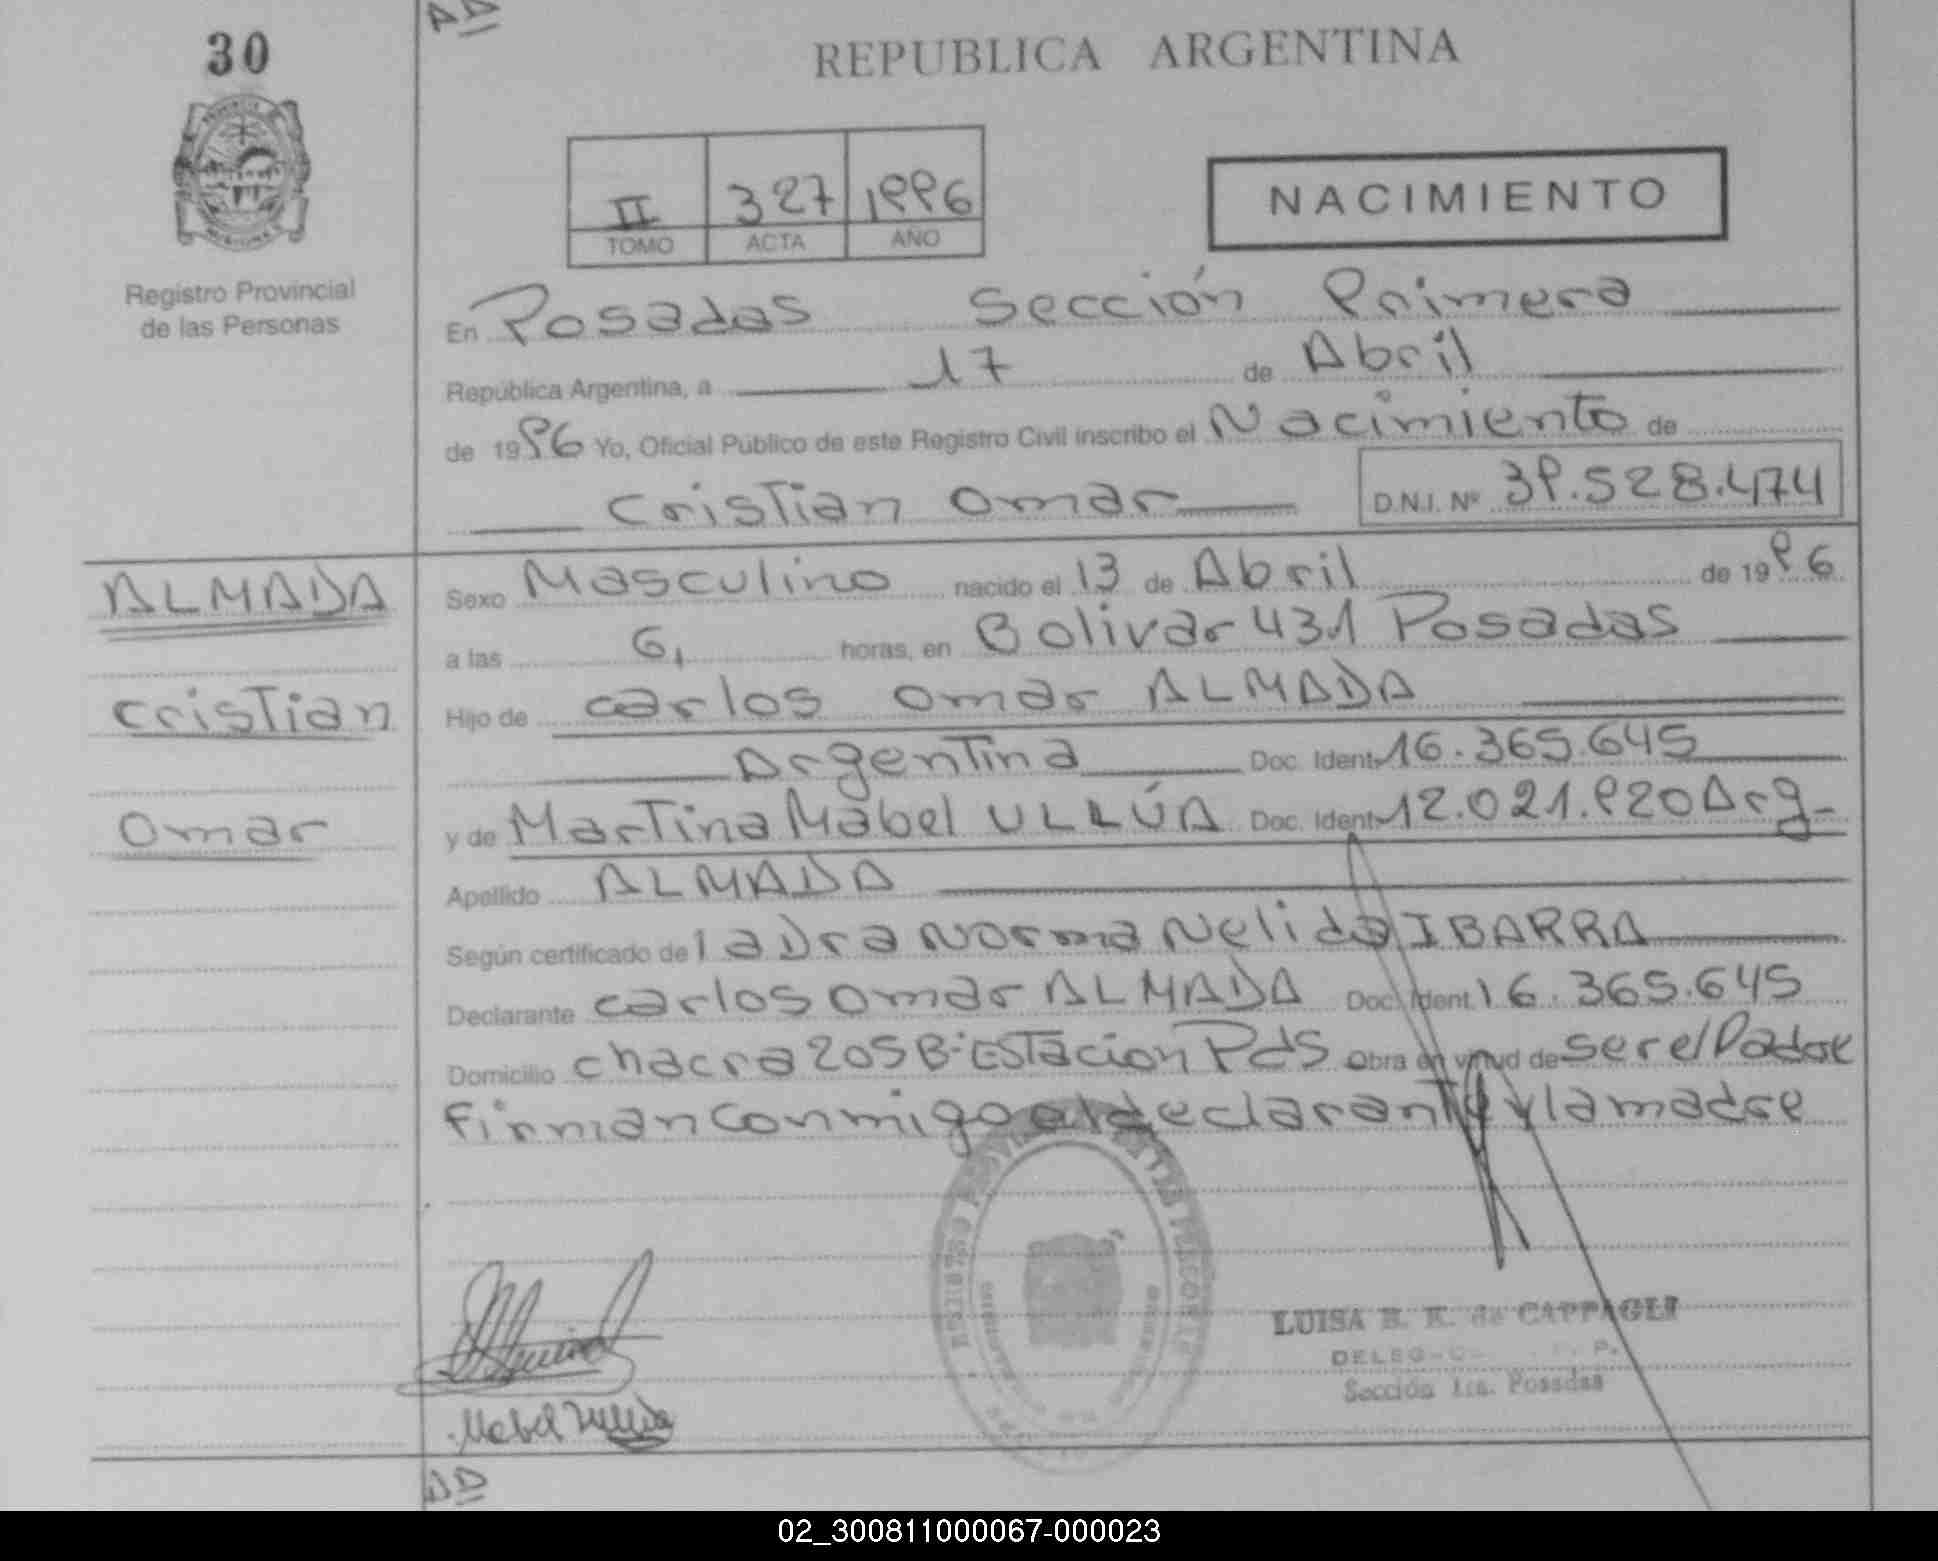 AD
30
REPUBLICA ARGENTINA
II 327 1996
TOMO ACTA AÑO
NACIMIENTO
Registro Provincial
de las Personas
En Posadas Sección Primera
República Argentina, a 17 de Abril
de 1996 Yo, Oficial Público de este Registro Civil inscribo el Nacimiento de
Cristian Omar D.N.I. Nº 39.528.474
ALMADA
Cristian
Omar
Sexo Masculino nacido el 13 de Abril de 1996
a las 6, horas, en Bolivar 431 Posadas
Hijo de Carlos Omar ALMADA
Argentina Doc. Ident. 16.365.645
y de Martina Mabel ULLÚA Doc. Ident. 12.021.920 Arg-
Apellido ALMADA
Según certificado de la Dra Norma Nelida IBARRA
Declarante Carlos Omar ALMADA Doc. Ident. 16.365.645
Domicilio Chacra 205 B: Estacion PdS Obra en virtud de ser el Padre
Firman conmigo el declarante y la madre
LUISA B. K. de CAPPAGLI
Sección 1ra. Posadas
AD
02_300811000067-000023